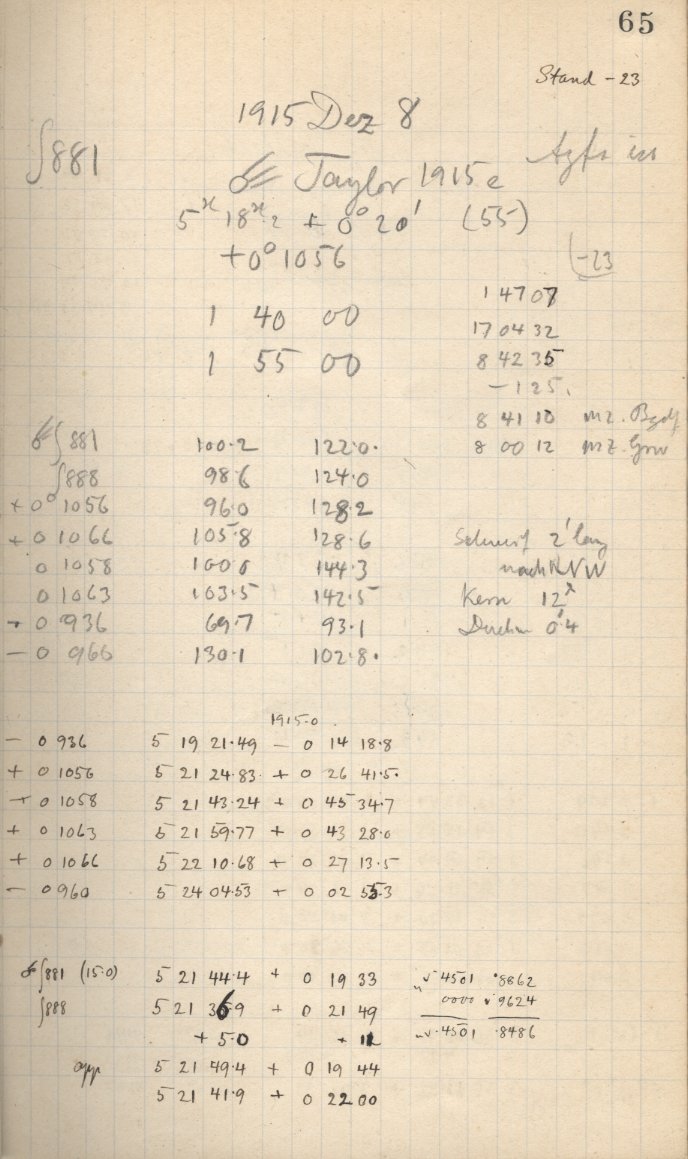 65
Stand - 23
1915 Dez 8
∫881
Taylor 1915e
Agfa iso
5ʰ 18ᵐ.2 + 0° 20' (55)
+0° 1056
-23
1 40 00
1 55 00
1 47 07
17 04 32
8 42 35
-1 25.
8 41 10 mz. Bgdf
8 00 12 mZ. Grw
∫881 100.2 122.0.
∫888 98.6 124.0
+ 0° 1056 96.0 128.2
+ 0 1066 105.8 128.6
0 1058 100.0 144.3
0 1063 103.5 142.5
- 0 936 69.7 93.1
- 0 966 130.1 102.8.
Schweif 2' lang
nach NNW
Kern 12
Durchm 0'.4
1915.0
- 0 936 5 19 21.49 - 0 14 18.8
+ 0 1056 5 21 24.83 + 0 26 41.5.
+ 0 1058 5 21 43.24 + 0 45 34.7
+ 0 1063 5 21 59.77 + 0 43 28.0
+ 0 1066 5 22 10.68 + 0 27 13.5
- 0 960 5 24 04.53 + 0 02 55.3
∫881 (15.0) 5 21 44.4 + 0 19 33
∫888 5 21 36.9 + 0 21 49
+ 5.0 + 11
app 5 21 49.4 + 0 19 44
5 21 41.9 + 0 22 00
.4501 .8862
0000 .9624
.4501 .8486